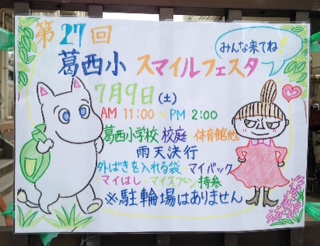 第27回
みんな来てね
葛西小 スマイルフェスタ
7月9日(土)
AM 11:00 〜 PM 2:00
葛西小学校 校庭 体育館他
雨天決行
外ばきを入れる袋 マイバック
マイはし マイスプーン 持参
※駐輪場はありません